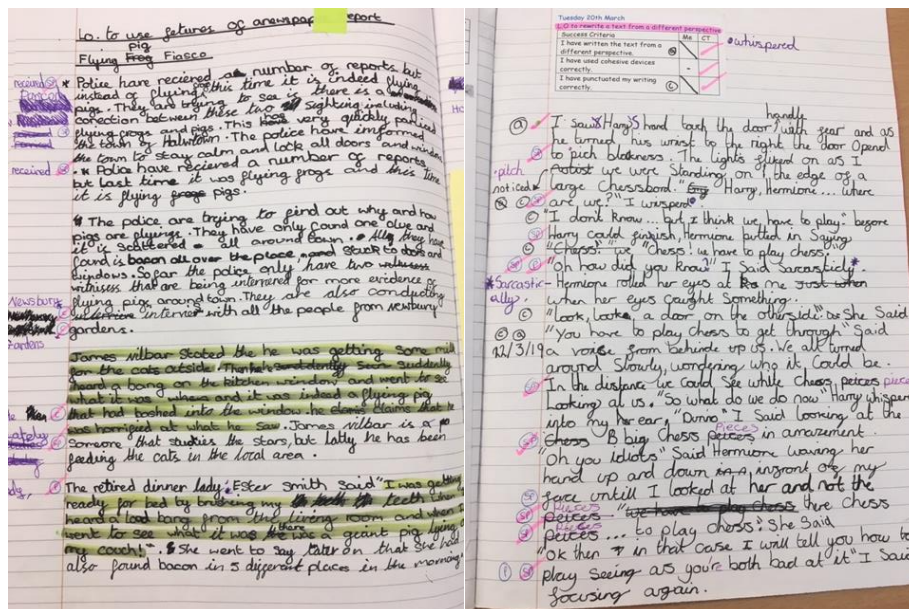 L.o. to use fetures of a newspaper report
Flying Frog Pig Fiasco
Police have recieved a number of reports but
instead of flying frogs this time it is indeed flying
pigs. They are trying to see is there is a
conection between these two sighting including
flying frogs and pigs. This has very quickly paniced
the town of Halmtown. The police have imformed
the town to stay calm and lock all doors and windows
Police have recieved a number of reports,
but last time it was flying frogs and this time
it is flying frogs pigs.
The police are trying to find out why and how
pigs are flying. They have only found one clue and
it is scattered all around town. All they have
found is bacon all over the place and stuck to doors and
windows. So far the police only have two witnesses
witnisess that are being interviewed for more evidence of
flying pigs around town. They are also conducting
interviews with all the people from newbury
gardens.
James Nilbar stated the he was getting some milk
for the cats outside. Then he suddently seen suddenly
heard a bang on the kitchen window and went to see
what it was when and it was indeed a flying pig
that had bashed into the window. he claims claims that he
was horrified at what he saw. James Nilbar is a
someone that studies the stars, but latly he has been
feeding the cats in the local area.
The retired dinner lady, Ester Smith said "I was getting
ready for bed by brushing my teeth teeth when I
heard a load bang from the living room and when I
went to see what it was there was a geant pig lying on
my couch!". She went to say later on that she had
also found bacon in 5 different places in the morning
received
received
Newbury
Gardens
Tuesday 20th March
L.O to rewrite a text from a different perspective
Success Criteria Me CT
I have written the text from a
different perspective.
I have used cohesive devices
correctly.
I have punctuated my writing
correctly.
whispered
I saw Harry's hand touch the door handle, with fear and as
he turned his wrist to the right the door Opend
to pich blackness. The lights flyked on as I
noticed we were Standing on the edge of a
large Chessbord. "Harry, Hermione... where
are we?" I wisperd.
"I don't know... but, I think we have to play." before
Harry could finnish, Hermione putted in Saying
"Chess." "we "Chess! we have to play chess."
"Oh how did you know?" I Said Sarcasticly
Hermione rolled her eyes at me just when
when her eyes caught Something.
"Look, Look, a door on the otherside" She Said
"You have to play chess to get through" Said
a voice from behinde up us. We all turned
around Slowly, wondering who it could be.
In the distance we could See while Chess peices pieces
Looking at us. "So what do we do now" Harry whisper
into my her ear, "Dunio" I Said Looking at the
Chess B big Chess peices Pieces in amazement.
"Oh you idiots" Said Hermione waving her
hand up and down infront of my
face untill I looked at her and not the
peices pieces "we have to play chess there Chess
peices pieces... to play chess" She Said
"Ok then in that case I will tell you how to
play Seeing as you're both bad at it" I Said
focusing again.
pitch
noticed
Sarcastic-
ally.
12/3/19